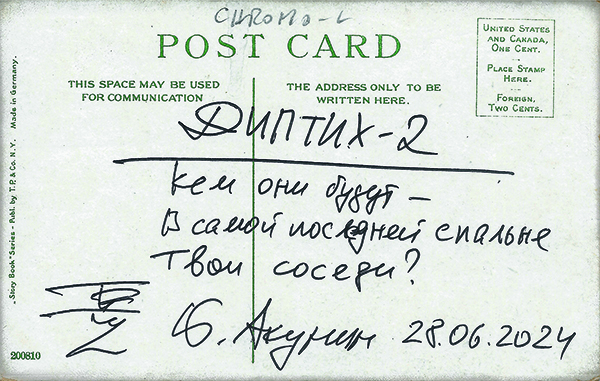 CHROMO-L
POST CARD
THIS SPACE MAY BE USED
FOR COMMUNICATION
THE ADDRESS ONLY TO BE
WRITTEN HERE.
UNITED STATES
AND CANADA,
ONE CENT.
PLACE STAMP
HERE.
FOREIGN,
TWO CENTS.
ДИПТИХ-2
Кем они будут –
В самой последней спальне
Твои соседи?
Б. Акунин 28.06.2024
„Story Book" Series - Publ. by T. P. & Co. N.Y. Made in Germany.
200810